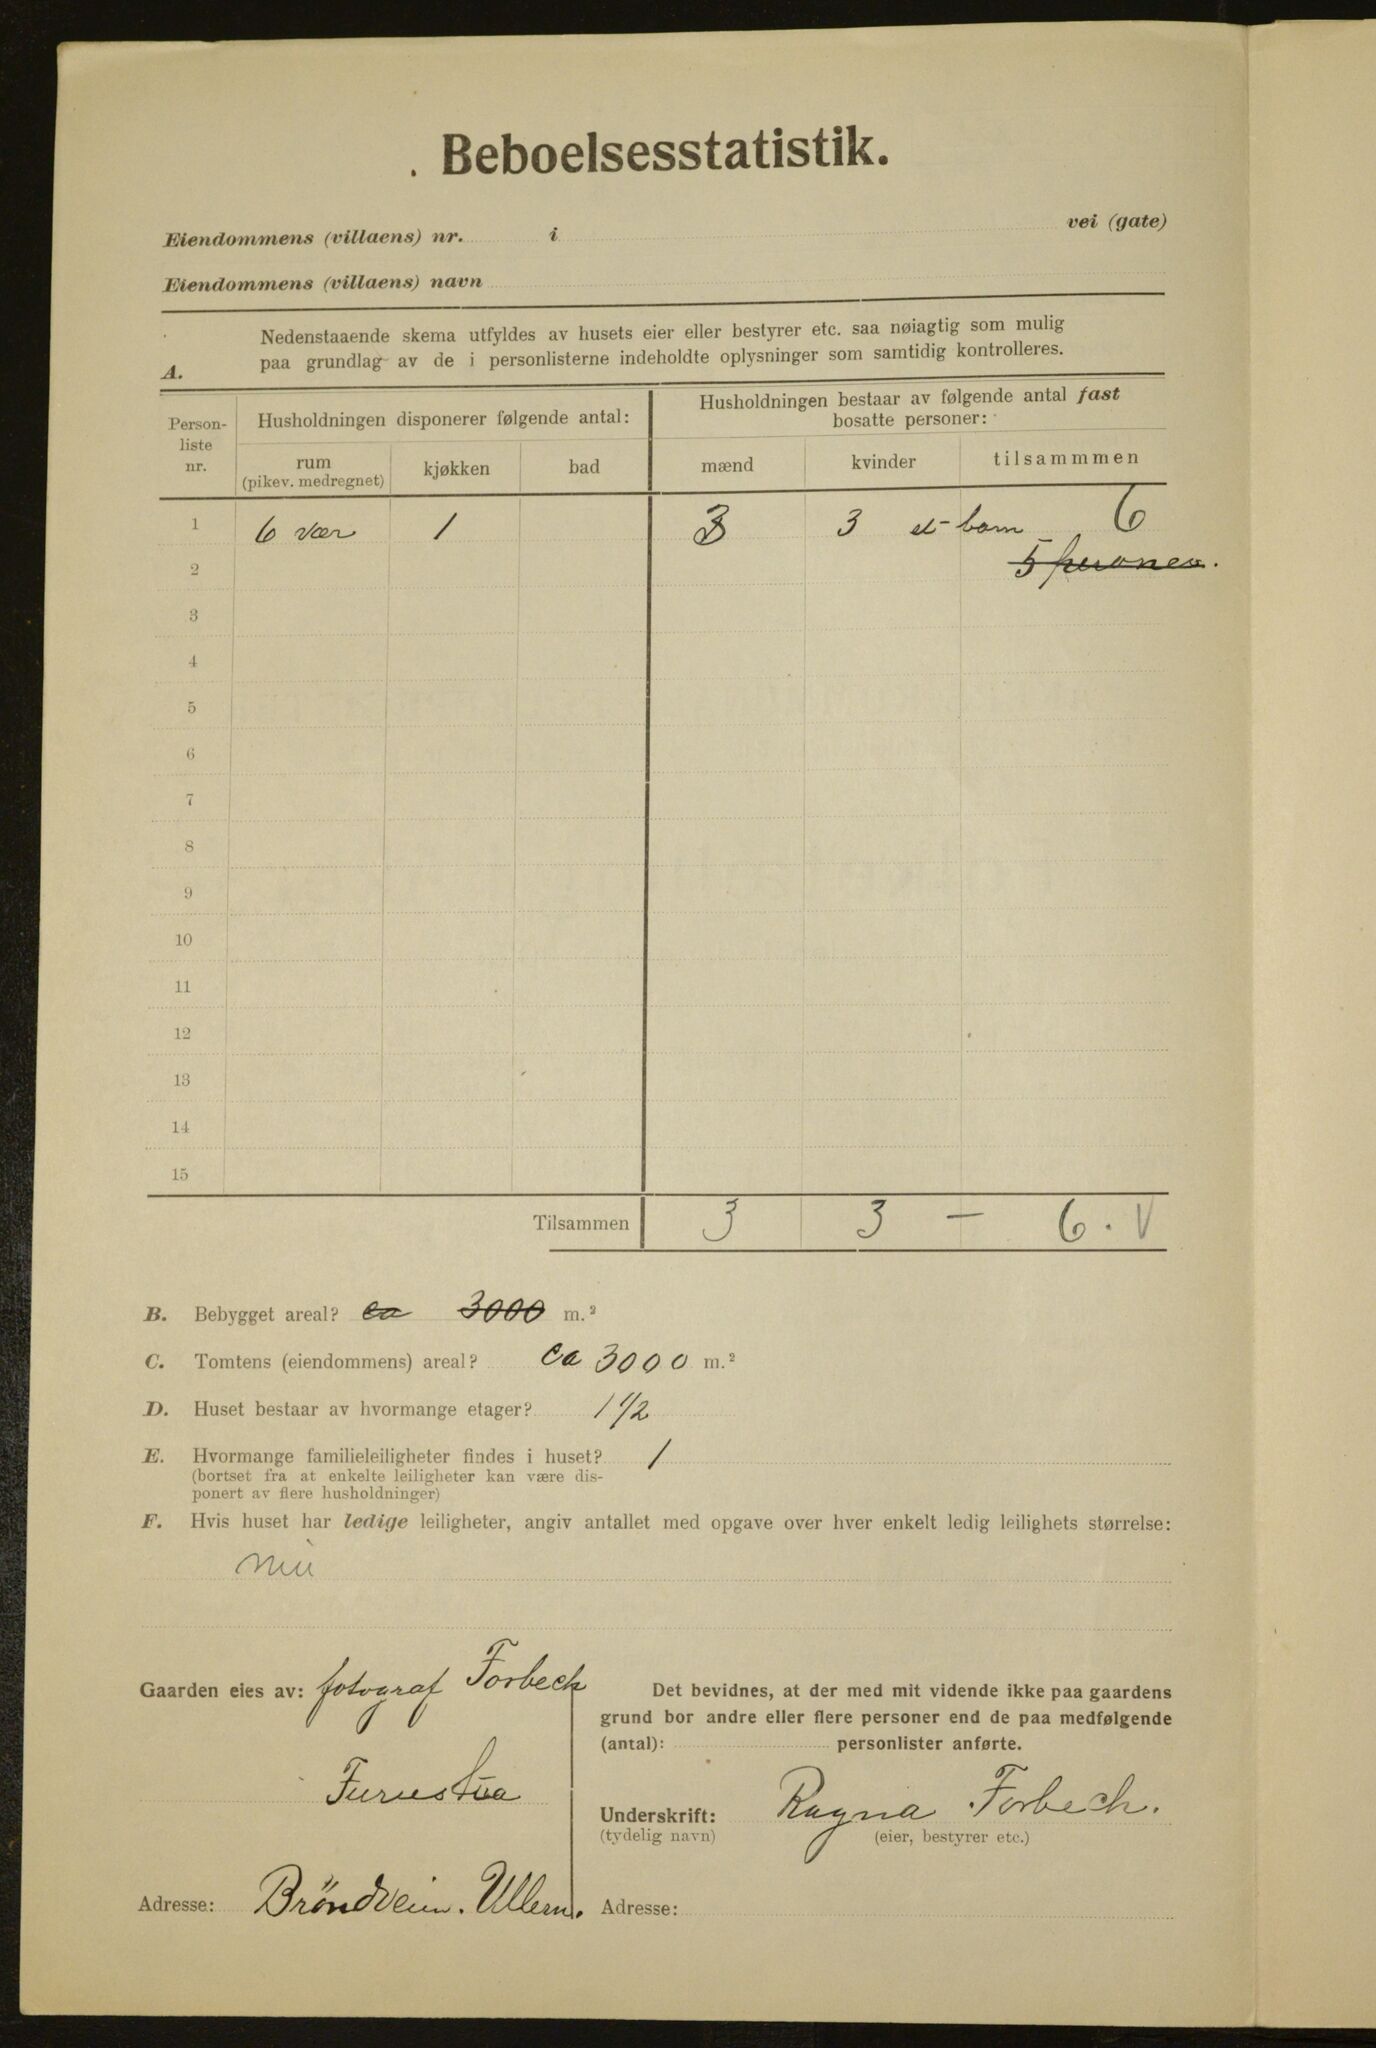 Beboelsesstatistik.
Eiendommens (villaens) nr. i vei (gate)
Eiendommens (villaens) navn
A. Nedenstaaende skema utfyldes av husets eier eller bestyrer etc. saa nøiagtig som mulig
paa grundlag av de i personlisterne indeholdte oplysninger som samtidig kontrolleres.
Person-
liste
nr.
Husholdningen disponerer følgende antal:
rum
(pikev. medregnet)
kjøkken
bad
Husholdningen bestaar av følgende antal fast
bosatte personer:
mænd
kvinder
tilsammmen
1 6 vær 1 3 3 et barn 6
2 5 personer.
3
4
5
6
7
8
9
10
11
12
13
14
15
Tilsammen 3 3 — 6. V
B. Bebygget areal? ca 3000 m.²
C. Tomtens (eiendommens) areal? ca 3000 m.²
D. Huset bestaar av hvormange etager? 1 1/2
E. Hvormange familieleiligheter findes i huset? 1
(bortset fra at enkelte leiligheter kan være dis-
ponert av flere husholdninger)
F. Hvis huset har ledige leiligheter, angiv antallet med opgave over hver enkelt ledig leilighets størrelse:
Gaarden eies av: fotograf Forbech
Furustua
Adresse: Bröndveien. Ullern.
Det bevidnes, at der med mit vidende ikke paa gaardens
grund bor andre eller flere personer end de paa medfølgende
(antal): personlister anførte.
Underskrift: Ragna Forbech.
(tydelig navn) (eier, bestyrer etc.)
Adresse: